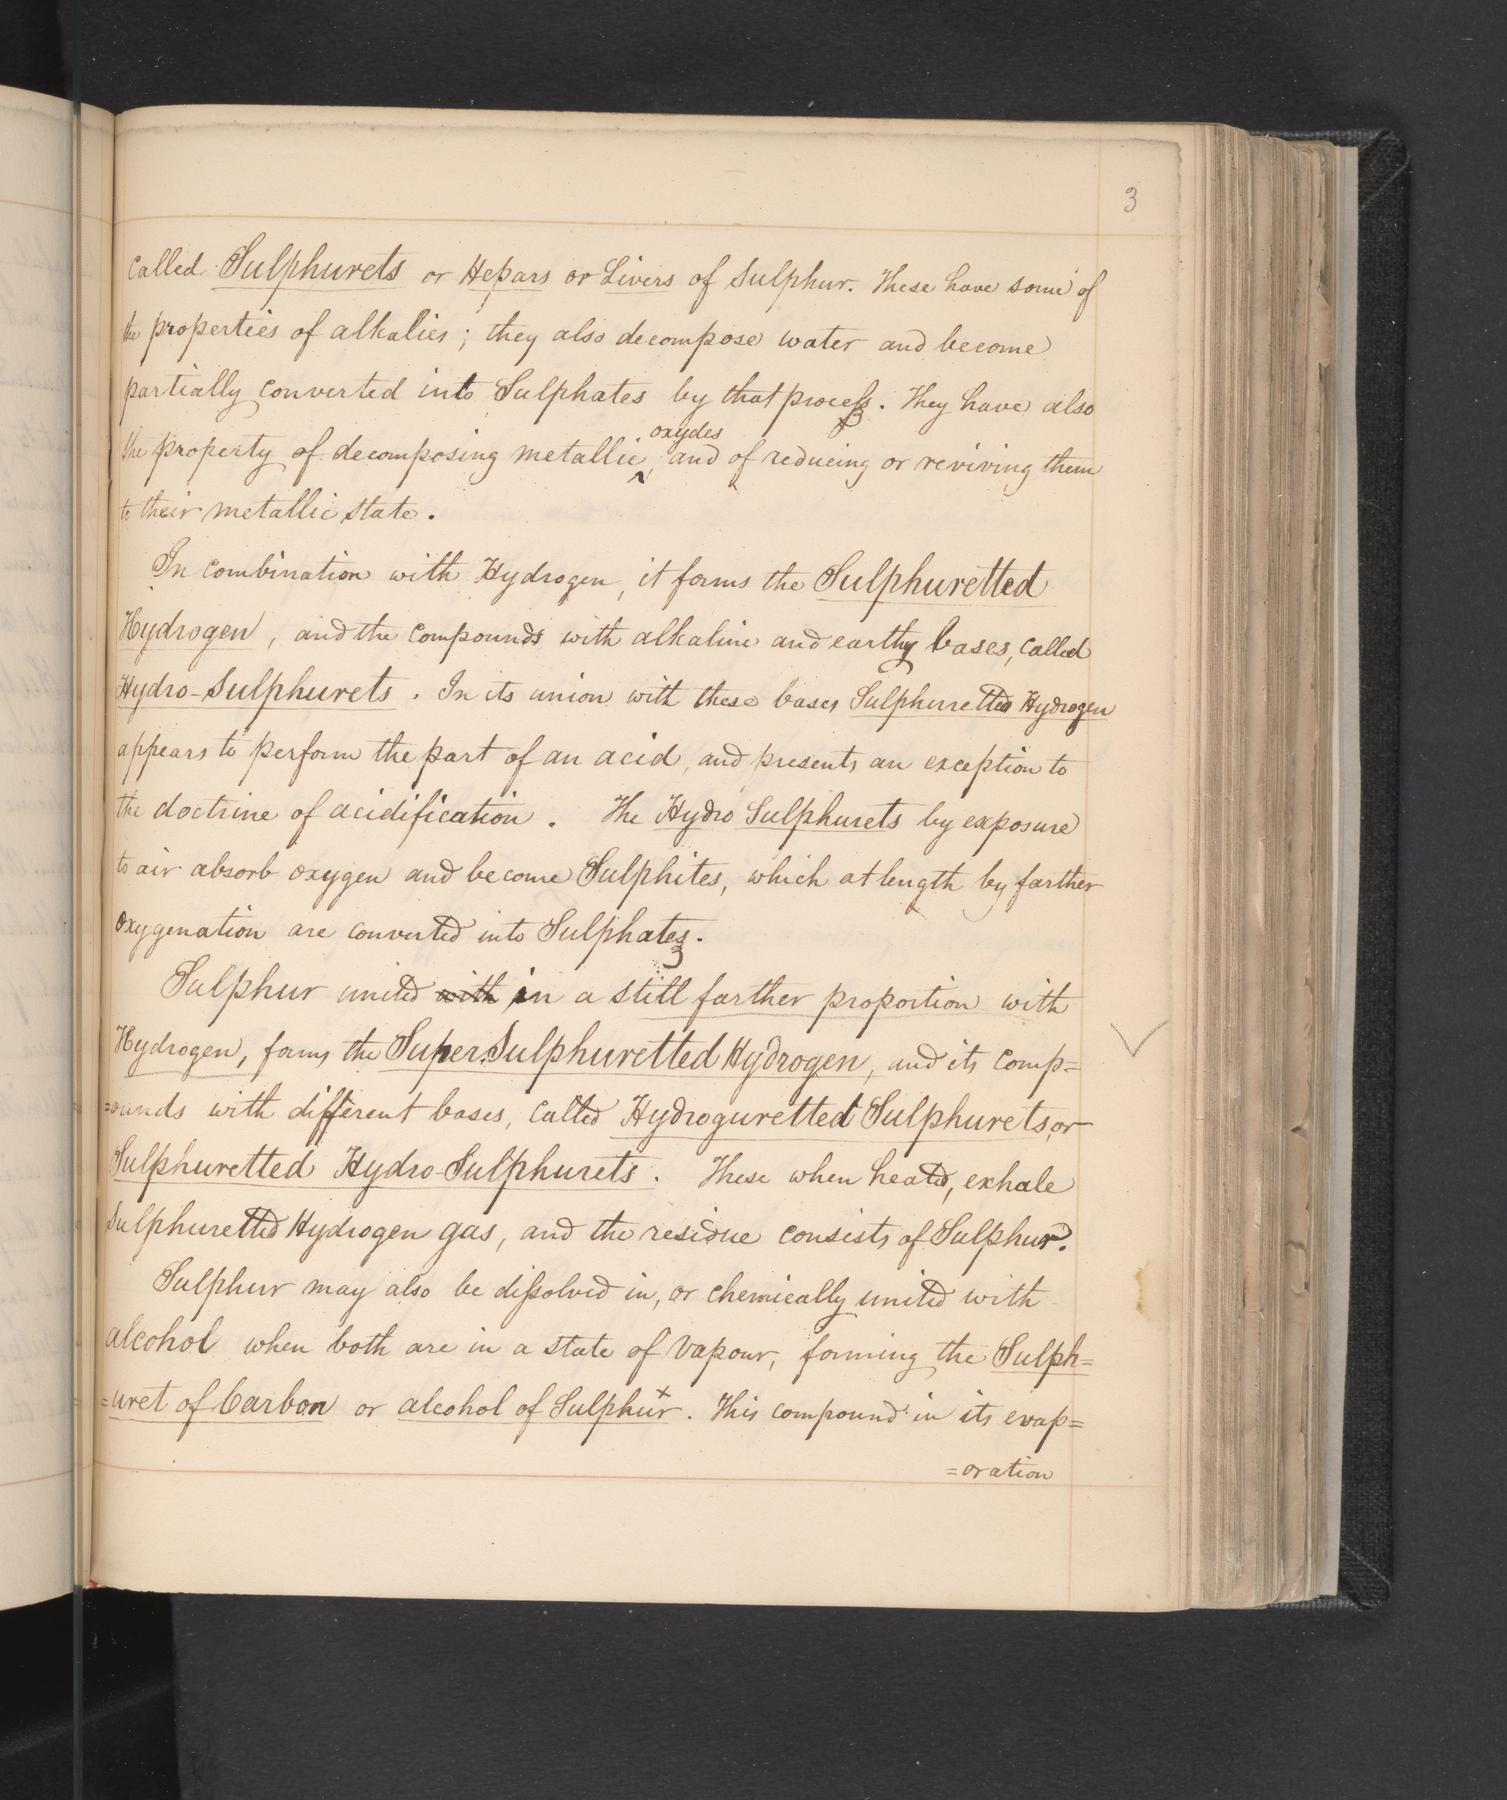 3
called Sulphurets or Hepars or Livers of Sulphur. These have some of
the properties of alkalies; they also decompose water and become
partially converted into Sulphates by that process. They have also
oxydes
the property of decomposing metallic ^ and of reducing or reviving them
to their metallic state.
In combination with Hydrogen, it forms the Sulphuretted
Hydrogen, and the compounds with alkaline and earthy bases, called
Hydro-Sulphurets. In its union with these bases Sulphuretted Hydrogen
appears to perform the part of an acid, and presents an exception to
the doctrine of acidification. The Hydro Sulphurets by exposure
to air absorb oxygen and become Sulphites, which at length by farther
oxygenation are converted into Sulphates.
Sulphur united with in a still farther proportion with
Hydrogen, forms the Super Sulphuretted Hydrogen, and its comp=
=ounds with different bases, called Hydroguretted Sulphurets, or
Sulphuretted Hydro-Sulphurets. These when heated, exhale
Sulphuretted Hydrogen gas, and the residue consists of Sulphur.
Sulphur may also be dissolved in, or chemically united with
alcohol when both are in a state of Vapour, forming the Sulph=
=uret of Carbon or alcohol of Sulphur x. This compound in its evap=
=oration